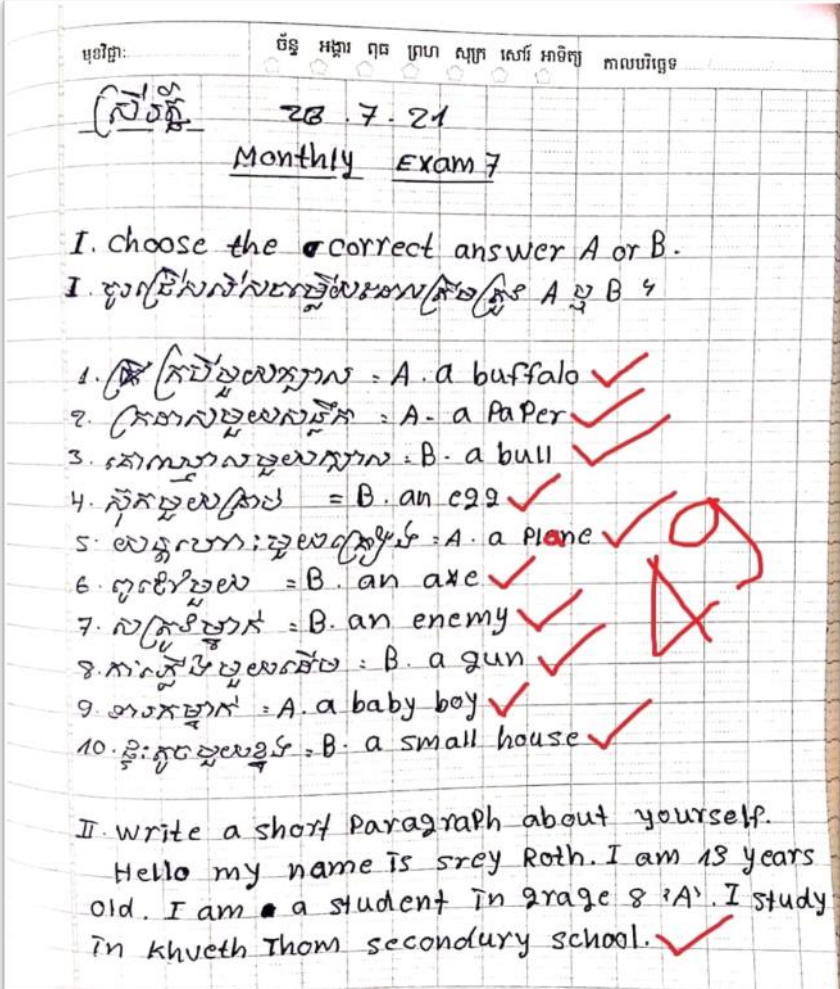 មុខវិជ្ជា: ច័ន្ទ អង្គារ ពុធ ព្រហ សុក្រ សៅរ៍ អាទិត្យ កាលបរិច្ឆេទ
ស្រីរ័ត្ន 28.7.21
Monthly Exam 7
I. choose the correct answer A or B.
I. ចូរជ្រើសរើសចម្លើយដែលត្រឹមត្រូវ A ឬ B ។
1. ក្របីមួយក្បាល = A. a buffalo
2. ក្រដាសមួយសន្លឹក = A- a PaPer
3. គោឈ្មោលមួយក្បាល = B. a bull
4. ស៊ុតមួយគ្រាប់ = B. an egg
5. យន្តហោះមួយគ្រឿង = A. a Plane
6. ពូថៅមួយ = B. an axe
7. សត្រូវម្នាក់ = B. an enemy
8. កាំភ្លើងមួយដើម = B. a gun
9. ទារកម្នាក់ = A. a baby boy
10. ផ្ទះតូចមួយខ្នង = B. a small house
49
II. write a short ParagraPh about yourself.
Hello my name is srey Roth. I am 13 years
old. I am a student in grage 8 'A'. I study
in Khveth Thom secondury school.